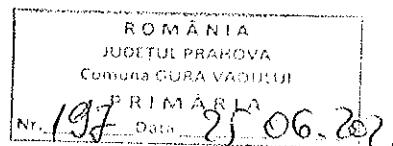 ROMÂNIA
JUDEŢUL PRAHOVA
Comuna GURA VADULUI
PRIMĂRIA
Nr. 197 Data 25 06. 202